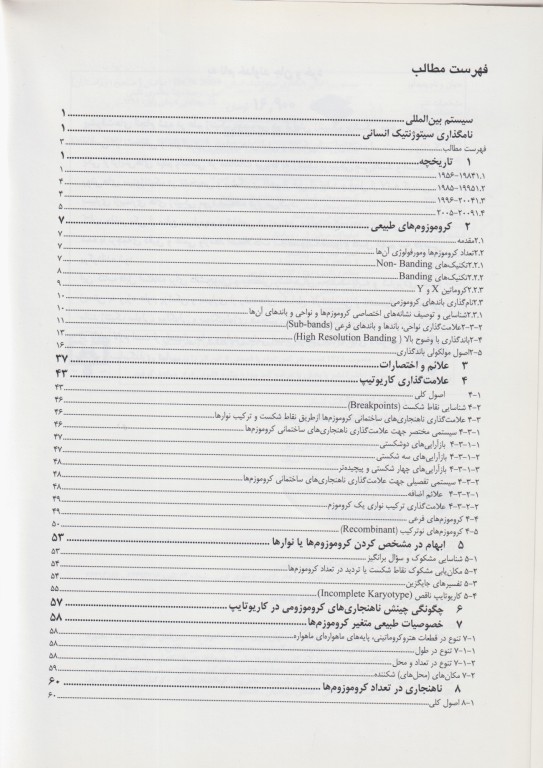 فهرست مطالب
سیستم بین‌المللی ۱
نامگذاری سیتوژنتیک انسانی ۱
فهرست مطالب ۳
۱ تاریخچه ۱
۱۹۵۶-۱۹۸۴۱.۱ ۱
۱۹۸۵-۱۹۹۵۱.۲ ۴
۱۹۹۶-۲۰۰۴۱.۳ ۴
۲۰۰۵-۲۰۰۹۱.۴ ۵
۲ کروموزوم‌های طبیعی ۷
۲.۱مقدمه ۷
۲.۲تعداد کروموزم‌ها ومورفولوژی آن‌ها ۷
۲.۲.۱تکنیک‌های Non- Banding ۷
۲.۲.۲تکنیک‌های Banding ۸
۲.۲.۳کروماتین X و Y ۹
۲.۳نام‌گذاری باندهای کروموزمی ۱۰
۲.۳.۱شناسایی و توصیف نشانه‌های اختصاصی کروموزم‌ها و نواحی و باندهای آن‌ها ۱۰
۲-۳-۲علامت‌گذاری نواحی، باندها و باندهای فرعی (Sub-bands) ۱۱
۲-۴باندگذاری با وضوح بالا (High Resolution Banding) ۱۳
۲-۵اصول مولکولی باندگذاری ۱۶
۳ علائم و اختصارات ۳۷
۴ علامت‌گذاری کاریوتیپ ۴۳
۴-۱ اصول کلی ۴۳
۴-۲ شناسایی نقاط شکست (Breakpoints) ۴۶
۴-۳ علامت‌گذاری ناهنجاری‌های ساختمانی کروموزم‌ها ازطریق نقاط شکست و ترکیب نوارها ۴۶
۴-۳-۱ سیستمی مختصر جهت علامت‌گذاری ناهنجاری‌های ساختمانی کروموزم‌ها ۴۶
۴-۳-۱-۱ بازآرایی‌های دوشکستی ۴۷
۴-۳-۱-۲ بازآرایی‌های سه شکستی ۴۷
۴-۳-۱-۳ بازآرایی‌های چهار شکستی و پیچیده‌تر ۴۸
۴-۳-۲ سیستمی تفصیلی جهت علامت‌گذاری ناهنجاری‌های ساختمانی کروموزم‌ها ۴۸
۴-۳-۲-۱ علائم اضافه ۴۸
۴-۳-۲-۲ علامت‌گذاری ترکیب نواری یک کروموزم ۴۹
۴-۴ کروموزم‌های فرعی ۴۹
۴-۵ کروموزم‌های نوترکیب (Recombinant) ۵۰
۵ ابهام در مشخص کردن کروموزوم‌ها یا نوارها ۵۳
۵-۱ شناسایی مشکوک و سؤال برانگیز ۵۳
۵-۲ مکان‌یابی مشکوک نقاط شکست یا تردید در تعداد کروموزم‌ها ۵۴
۵-۳ تفسیرهای جایگزین ۵۴
۵-۴ کاریوتایپ ناقص (Incomplete Karyotype) ۵۵
۶ چگونگی چینش ناهنجاری‌های کروموزومی در کاریوتایپ ۵۷
۷ خصوصیات طبیعی متغیر کروموزم‌ها ۵۸
۷-۱ تنوع در قطعات هتروکروماتینی، پایه‌های ماهواره‌ای ماهواره ۵۸
۷-۱-۱ تنوع در طول ۵۸
۷-۱-۲ تنوع در تعداد و محل ۵۸
۷-۲ مکان‌های (محل‌های) شکننده ۵۹
۸ ناهنجاری در تعداد کروموزوم‌ها ۶۰
۸-۱ اصول کلی ۶۰